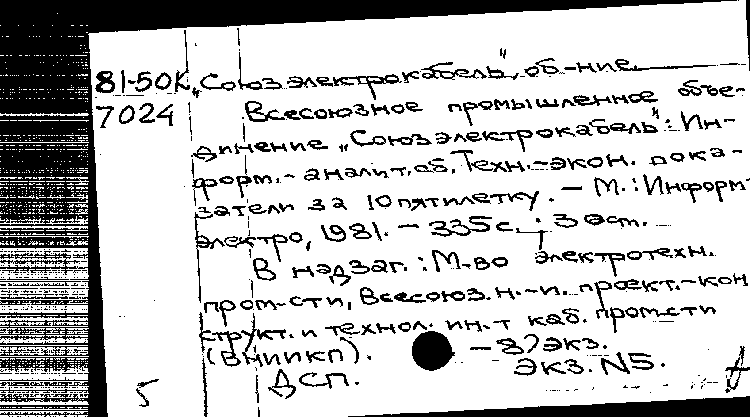 81-50К „Союзэлектрокабель", об-ние.
7024 Всесоюзное промышленное объе-
динение „Союзэлектрокабель": Ин-
форм.-аналит. сб. Техн.-экон. пока-
затели за 10 пятилетку. - М.: Информ-
электро, 1981. - 335с.;
В надзаг.: М-во электротехн.
пром-сти, Всесоюз. н.-и. проект.-кон
структ. и технол. ин-т каб. пром-сти
(ВНИИКП). - 87экз.
ДСП. Экз. N5.
5